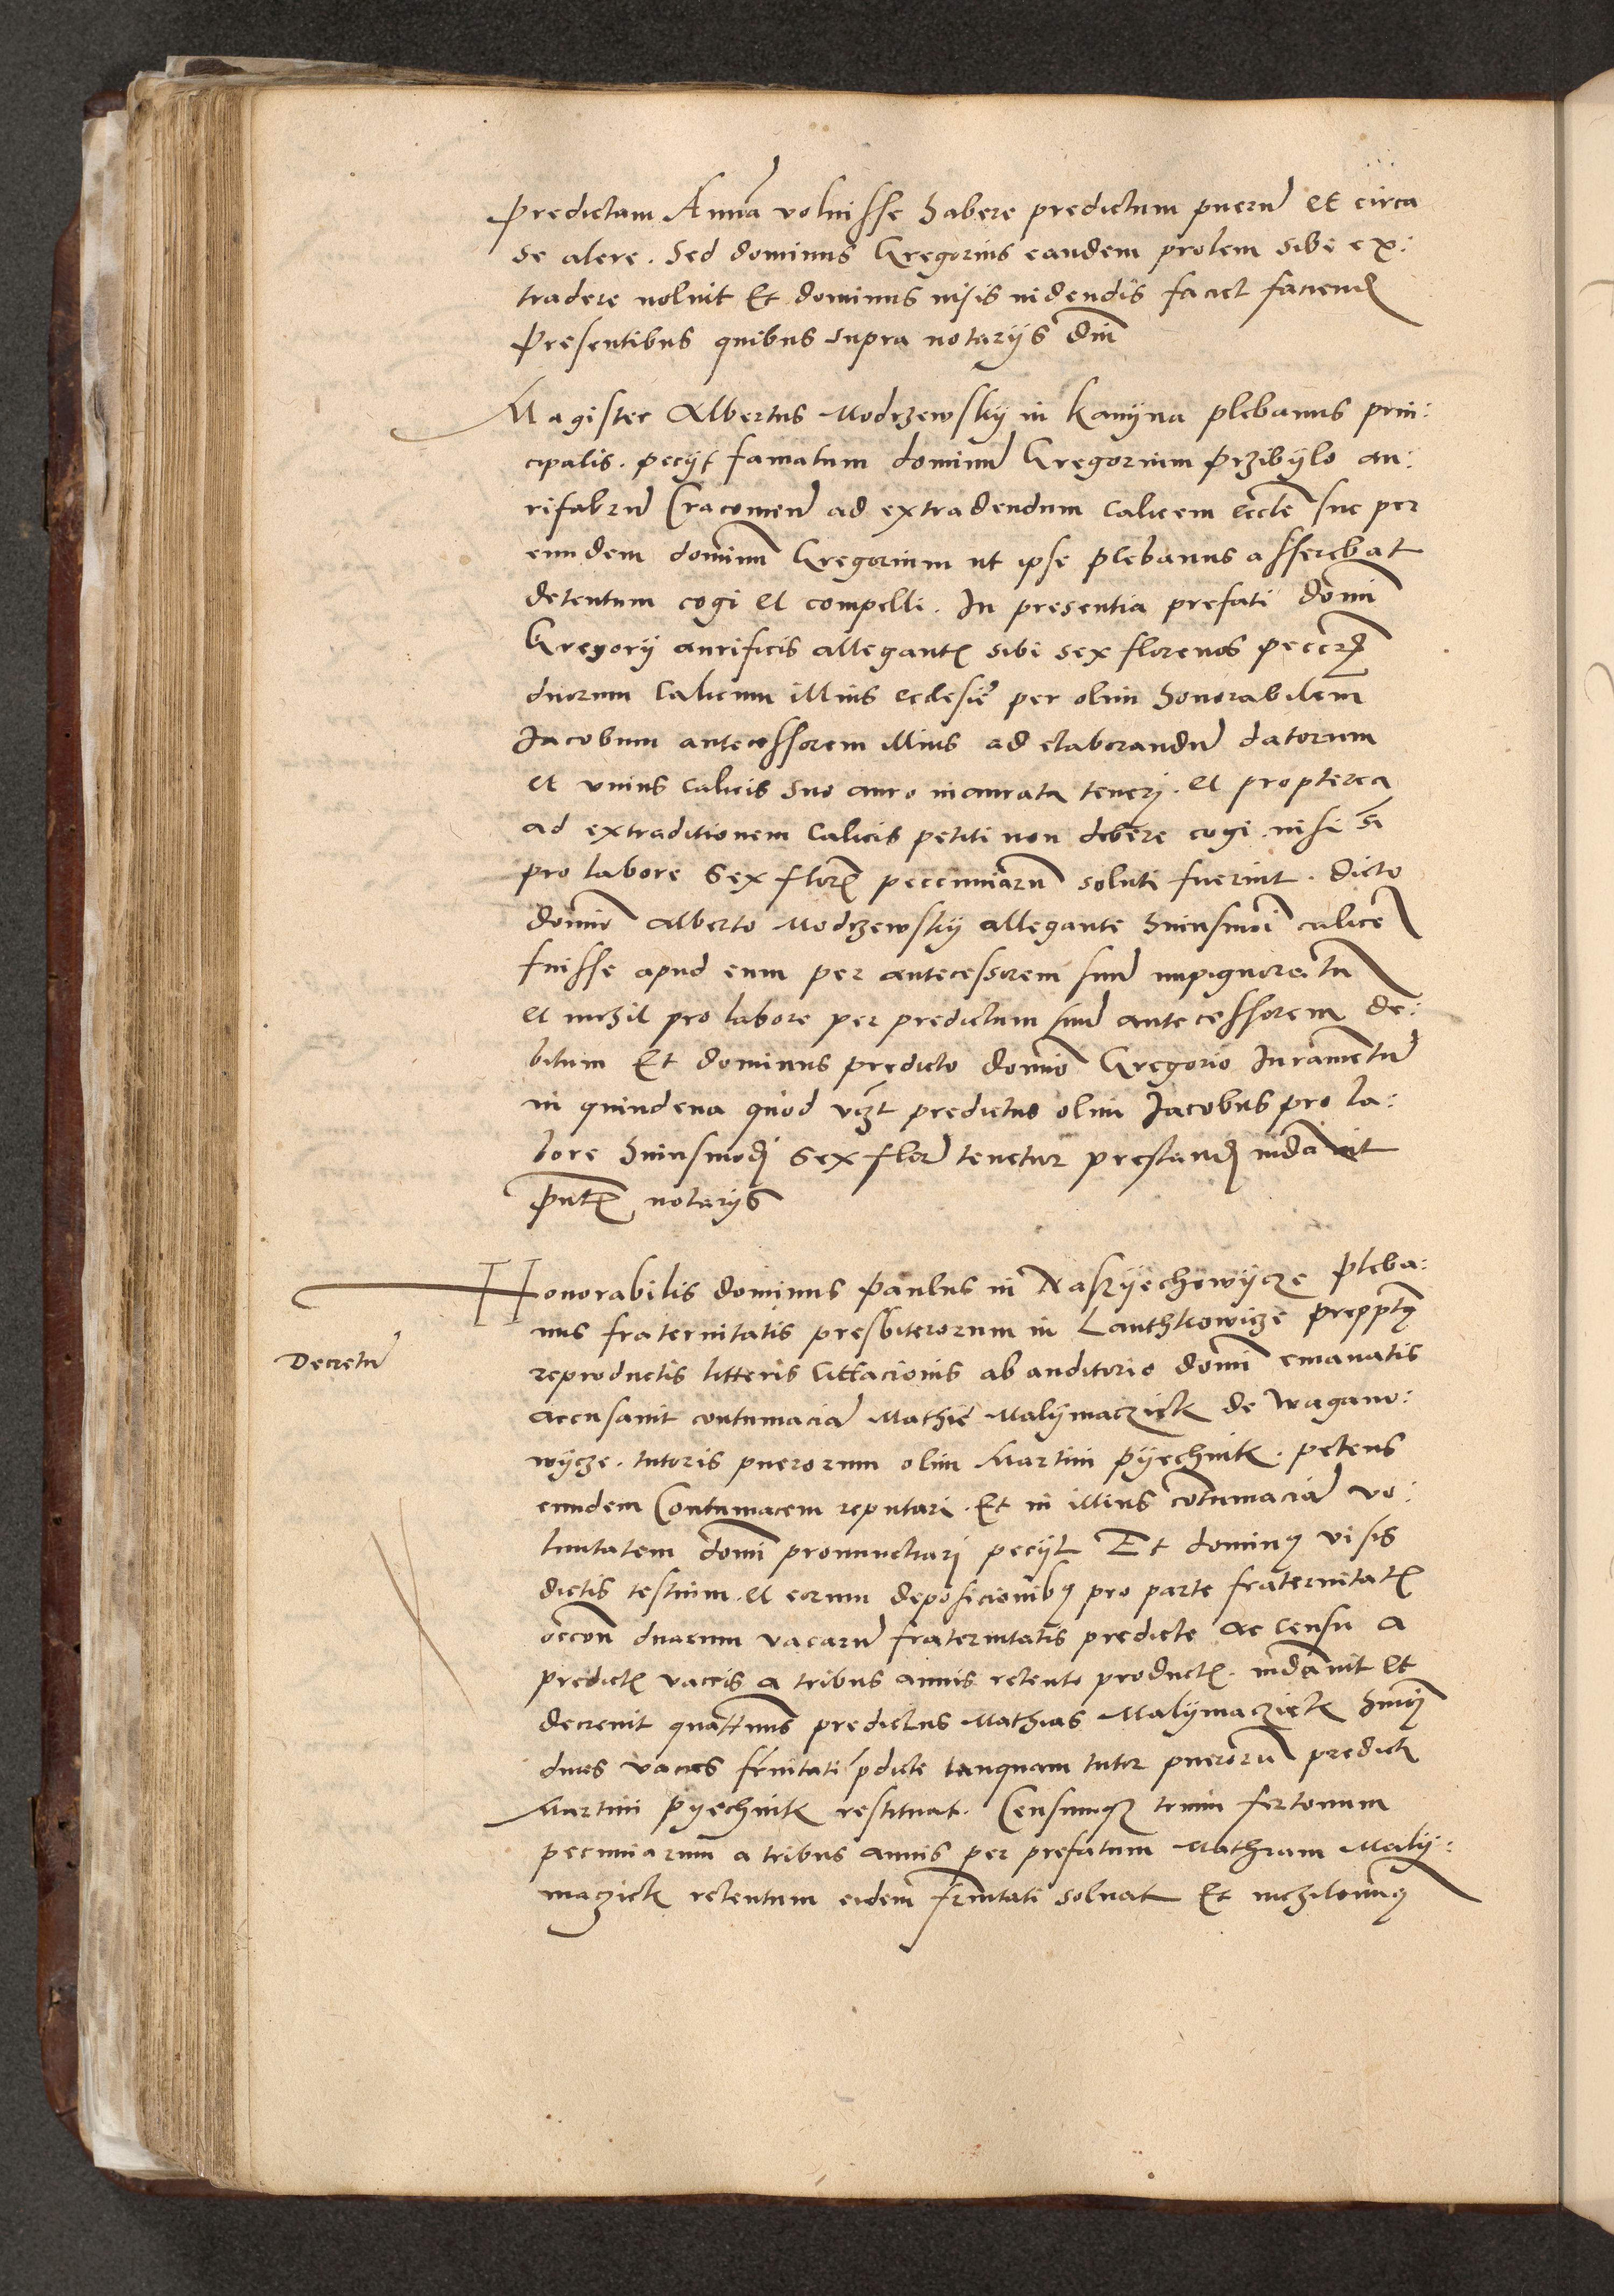 predictam Annā voluisse habere predictum puerū et circa
se alere. Sed dominus Gregorius eandem prolem sibi ex:
tradere noluit Et dominus visis videndis faciet faciend
Presentibus quibus supra notarijs dm̄
Magister Albertus Modrzewsky in Kamyna plebanus prin:
cipalis. pecijt famatum dominū Gregorium Przibylo au:
rifabrū Cracovieñ ad extradendum calicem eccl̄e sue per
eundem dominū Gregorium ut ipse plebanus asserebat
detentum cogi et compelli. In presentia prefati domī
Gregorij aurificis allegant̄ sibi sex florenos
duorum calicum illius ecclesie per olim honorabilem
Jacobum antecessorem illius ad elaborandū datorum
et unius calicis suo auro inaurata teneri. et propterea
ad extraditionem calicis petiti non debere cogi. nisi si
pro labore sex florē pecuniarū soluti fuerint. dicto
domīo Alberto Modrzewsky allegante huiusmōi calicē
fuisse apud eum per antecessorem suū impignoratū
et nichil pro labore per predictum suū antecessorem de:
bitum Et dominus predicto domīo Gregorio Juramentū
in quindena quod vz̄t predictus olim Jacobus pro la:
bore huiusmodj sex florē tenetur prestand indauit
pn̄t̄ notarijs
Honorabilis dominus Paulus in Raszyechowycze pleba:
nus fraternitatis presbiterorum in Lanthkowicze
Decretū
reproductis litteris Cittacionis ab auditorio domī emanatis
accusavit contumaciā Mathie Malymaczick de Wagano:
wycze. tutoris puerorum olim Martini Pyechnik. petens
eundem Contumacem reputari. Et in illius cōtumaciā vo:
luntatem domī pronunctiari pecijt Et dominꝰ visis
dictis testium. et eorum deposicionibꝰ pro parte fraternitat̄
duarum vacarū fraternitatis predicte ac Censu a
predict̄ vaccis a tribus annis retento product̄. indauit et
decrevit quattinus predictus Mathias Malymaczick
duas vaccas fr̄nitati p̄dicte tanquam tutor puerorū predict̄
Martini Pyechnik restituat. Censumqꝫ trium fertonum
pecuniarum a tribus annis per prefatum Mathiam Maly:
maczick retentum eidem fr̄nitati solvat Et nichilominꝰ